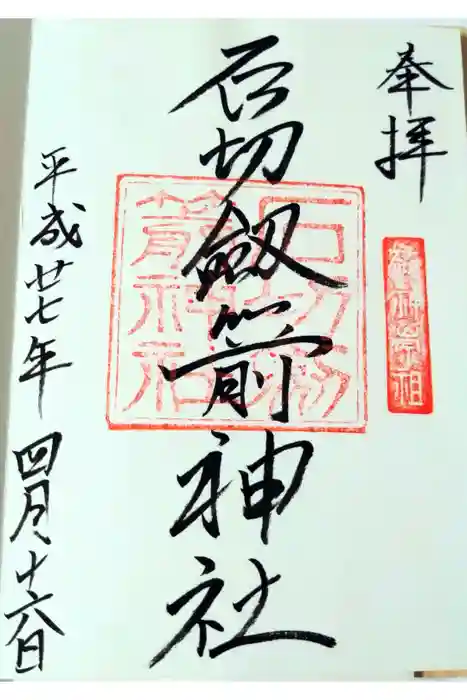 奉拝
石切劔箭神社
石切劔
箭神社
平成廿七年四月十六日